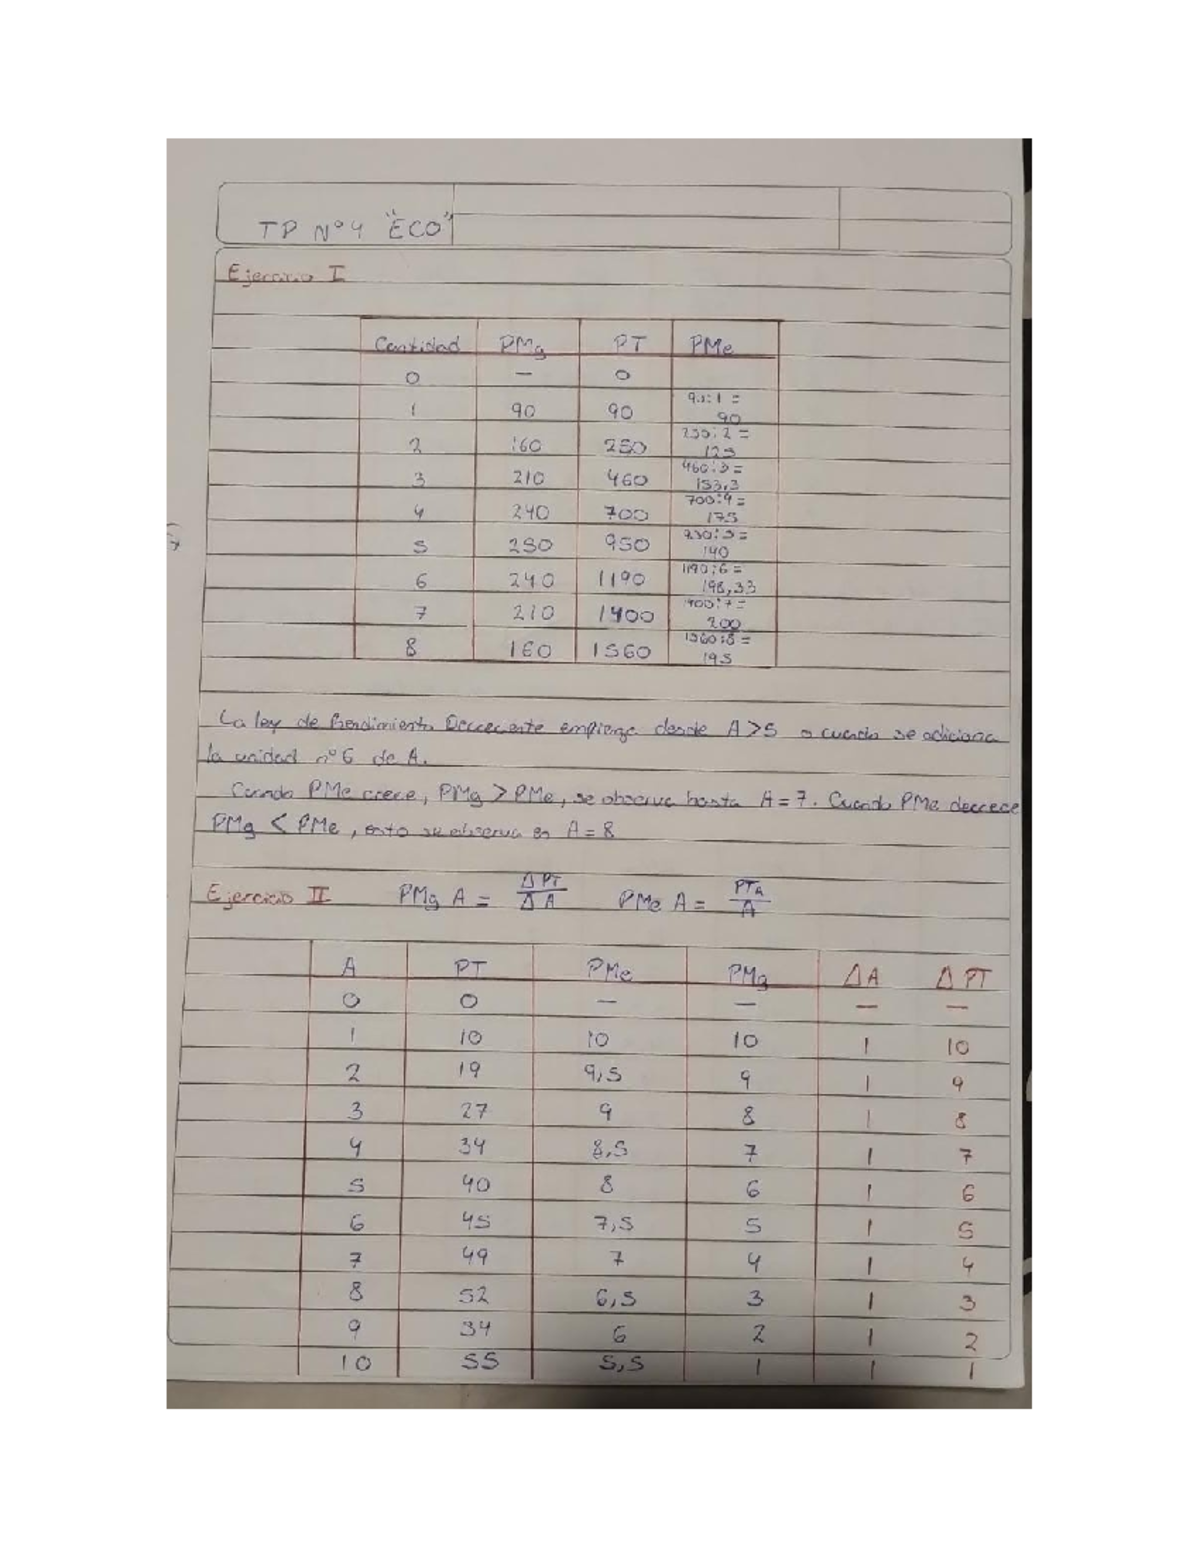 TP Nº4 "ECO"
Ejercicio I
Cantidad PMg PT PMe
0 — 0
1 90 90 90:1 = 90
2 160 250 250:2 = 125
3 210 460 460:3 = 153,3
4 240 700 700:4 = 175
5 250 950 950:5 = 190
6 240 1190 1190:6 = 198,33
7 210 1400 1400:7 = 200
8 160 1560 1560:8 = 195
La ley de Rendimiento Decreciente empieza desde A>5 o cuando se adiciona
la unidad nº6 de A.
Cuando PMe crece, PMg > PMe, se observa hasta A=7. Cuando PMe decrece
PMg < PMe, esto se observa en A=8
Ejercicio II PMg A = ΔPT/ΔA PMe A = PTa/A
A PT PMe PMg ΔA ΔPT
0 0 — — — —
1 10 10 10 1 10
2 19 9,5 9 1 9
3 27 9 8 1 8
4 34 8,5 7 1 7
5 40 8 6 1 6
6 45 7,5 5 1 5
7 49 7 4 1 4
8 52 6,5 3 1 3
9 34 6 2 1 2
10 55 5,5 1 1 1